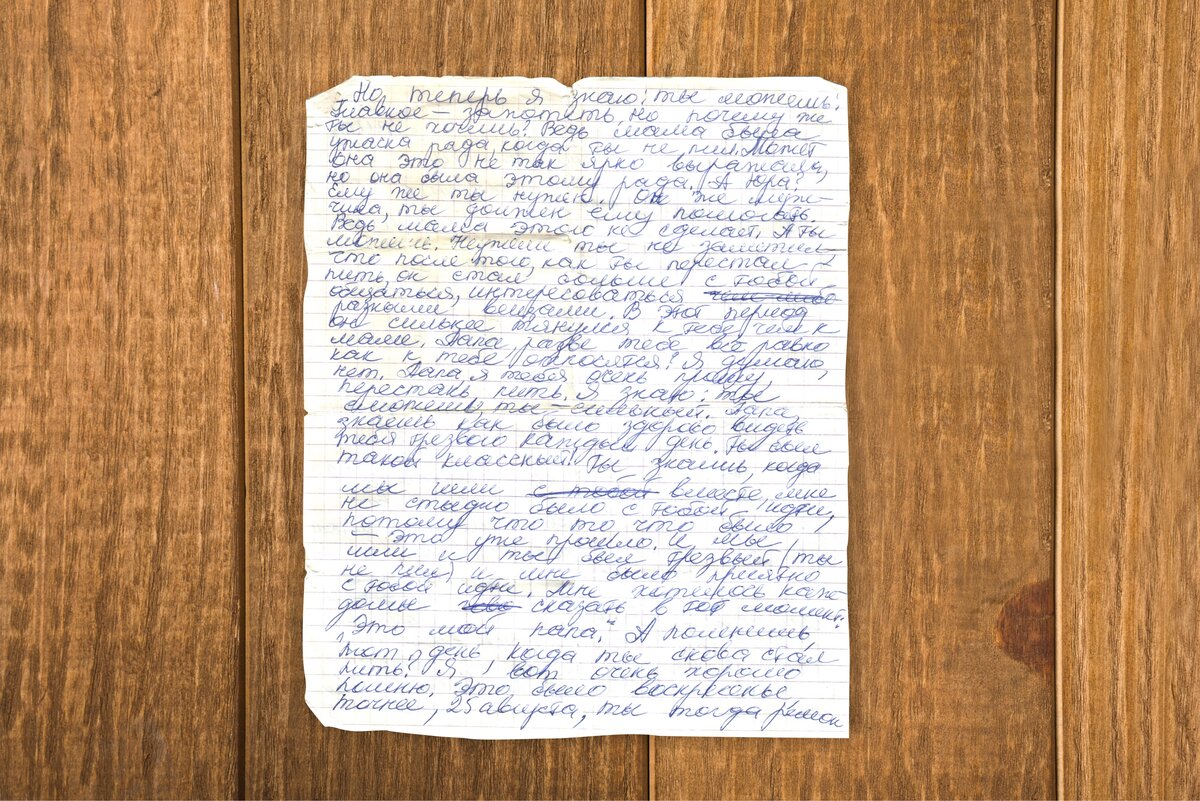 Но, теперь я знаю: ты можешь!
Главное – захотеть, но почему же
ты не хочешь? Ведь мама была
ужасна рада, когда ты не пил. Может
она это не так ярко выражала,
но она была этому рада. А Юра?
Ему же ты нужен. Он же муж-
чина, ты должен ему помогать.
Ведь мама этого не сделает. А ты
можешь. Неужели ты не заметил
что после того, как ты перестал
пить, он стал больше с тобой
общаться, интересоваться
разными вещами. В этот период
он сильнее тянулся к тебе чем к
маме. Папа, разве тебе всё равно
как к тебе относятся? Я думаю,
нет. Папа я тебя очень прошу,
перестань пить. Я знаю: ты
сможешь, ты – сильный. Папа,
знаешь как было здорово видеть
тебя трезвого каждый день. Ты был
такой классный! Ты знаешь, когда
мы шли с тобой вместе, мне
не стыдно было с тобой идти,
потому что то что было,
– это уже прошло. И мы
шли и ты был трезвый (ты
не пил) и мне было приятно
с тобой идти. Мне хотелось каж-
дому сказать в тот момент:
"Это мой папа." А помнишь,
тот день когда ты снова стал
пить? Я, вот очень хорошо
помню. Это было воскресенье,
точнее, 25 августа, ты тогда ремон